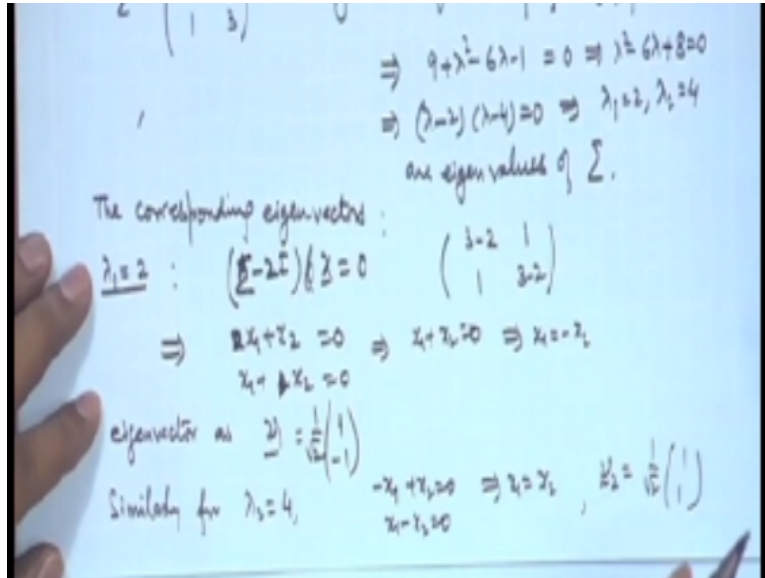 Σ ( 1 3 )
⇒ 9+λ²-6λ-1 = 0 ⇒ λ²-6λ+8=0
⇒ (λ-2)(λ-4)=0 ⇒ λ₁=2, λ₂=4
are eigen values of Σ.
The corresponding eigenvectors :
λ₁=2 : (Σ-2I) x = 0 ( 3-2 1
1 3-2 )
⇒ x₁+x₂ = 0 ⇒ x₁+x₂=0 ⇒ x₁=-x₂
x₁+ x₂ = 0
eigenvector as = 1/√2 ( 1
-1 )
Similarly for λ₂=4, -x₁+x₂=0 ⇒ x₁=x₂ , = 1/√2 ( 1
x₁-x₂=0 1 )